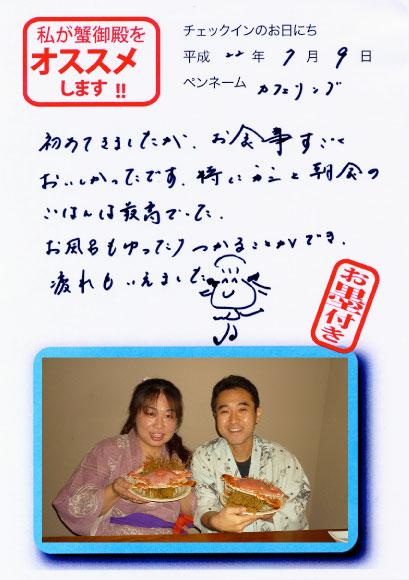 私が蟹御殿を
オススメ
します!!
チェックインのお日にち
平成 22 年 7 月 9 日
ペンネーム カフェリンブ
初めてきましたが、お食事すごく
おいしかったです。特にカニと朝食の
ごはんは最高でした。
お風呂もゆったりつかることができ、
疲れもいえました
お墨付き